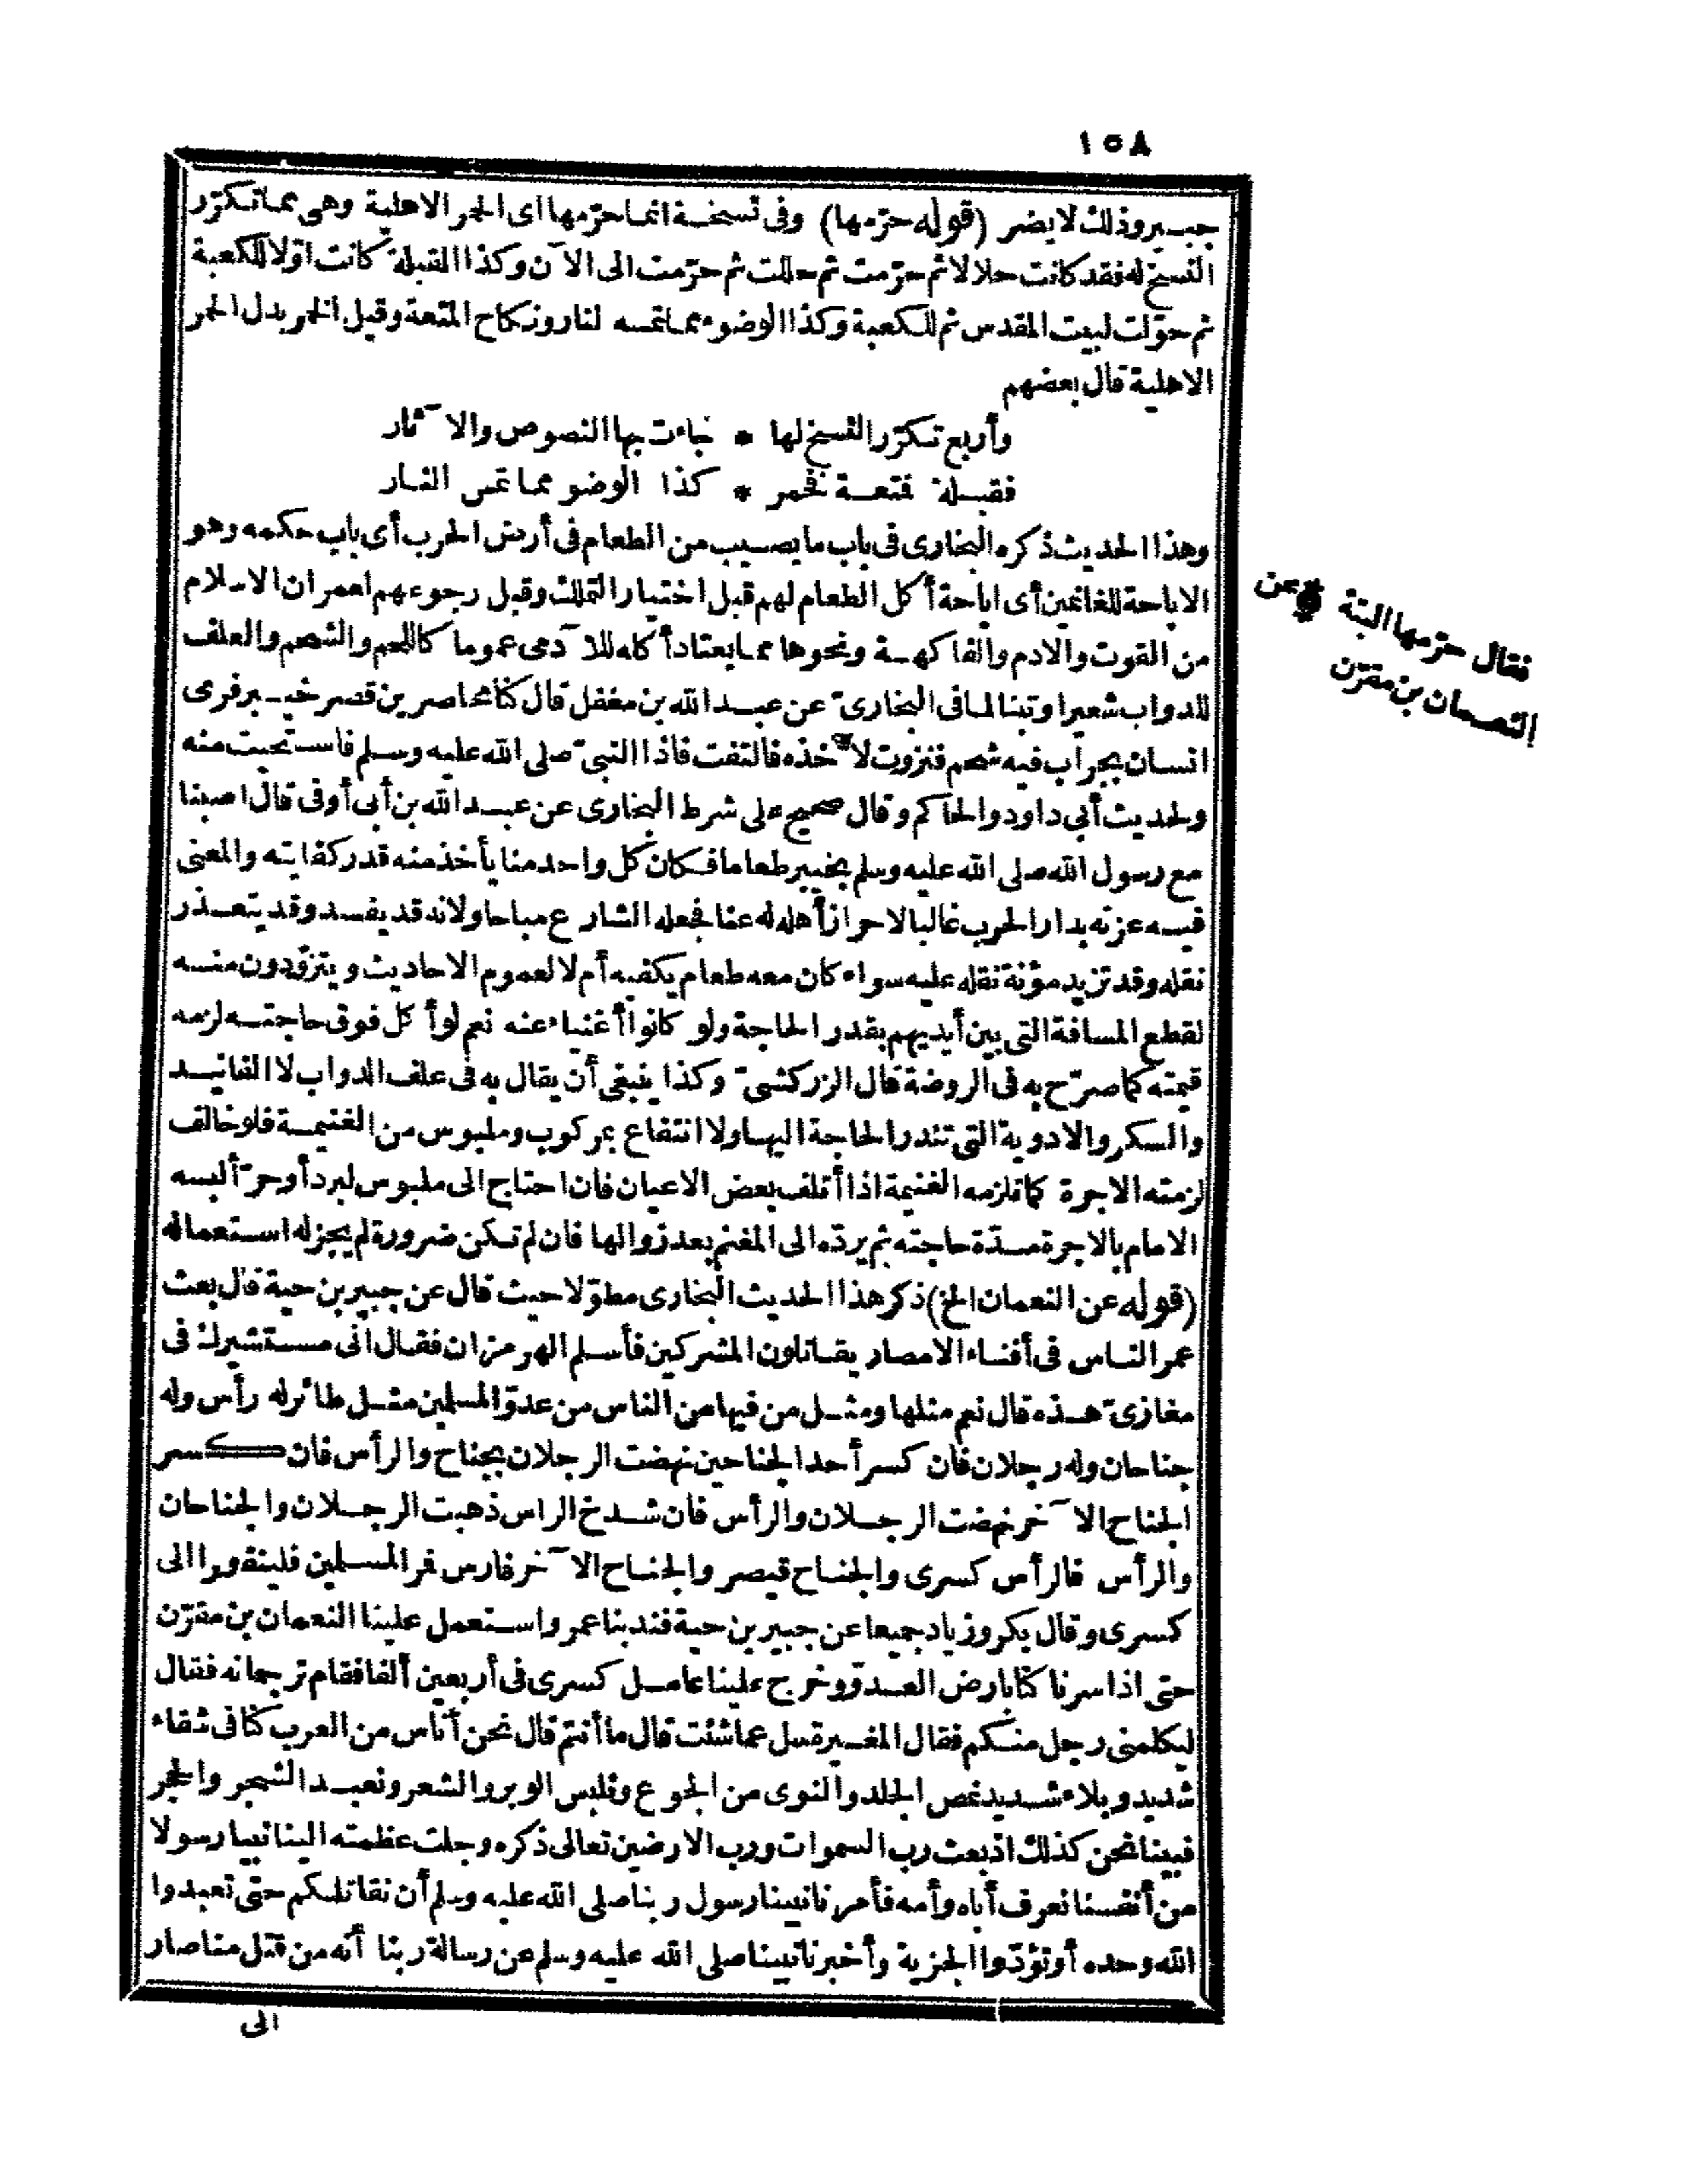 ١٥٨
جبير وذلك لا يضر (قوله حرّمها) وفى نسخة انما حرّمها اى الحمر الاهلية وهى مما تكرّر
النسخ له فقد كانت حلالا ثم حرّمت ثم حللت ثم حرّمت الى الآن وكذا القبلة كانت اوّلا للكعبة
ثم حوّلت لبيت المقدس ثم للكعبة وكذا الوضوء مما تمسه النار ونكاح المتعة وقيل الخمر بدل الحمر
الاهلية قال بعضهم
وأربع تكرّر النسخ لها * جاءت بها النصوص والآثار
فقبلة فمتعة فخمر * كذا الوضو مما تمس النار
وهذا الحديث ذكره البخارى فى باب ما يصيب من الطعام فى أرض الحرب أى باب حكمه وهو
الاباحة للغانمين أى اباحة أكل الطعام لهم قبل اختيار التملك وقبل رجوعهم لعمران الاسلام
من القوت والادم والفاكهة ونحوها مما يعتاد أكله للآدمى عموما كاللحم والشحم والعلف
للدواب شعيرا وتبنا لما فى البخارىّ عن عبد الله بن مغفل قال كنا محاصرين قصر خيبر فرمى
انسان بجراب فيه شحم فنزوت لآخذه فالتفت فاذا النبىّ صلى الله عليه وسلم فاستحيت منه
ولحديث أبى داود والحاكم وقال صحيح على شرط البخارى عن عبد الله بن أبى أوفى قال اصبنا
مع رسول الله صلى الله عليه وسلم بخيبر طعاما فكان كل واحد منا يأخذ منه قدر كفايته والمعنى
فيه عزته بدار الحرب غالبا لاحراز أهله له عنا فجعله الشارع مباحا ولانه قد يفسد وقد يتعذر
نقله وقد تزيد مؤنة نقله عليه سواء كان معه طعام يكفيه أم لا لعموم الاحاديث ويتزوّدون منه
لقطع المسافة التى بين أيديهم بقدر الحاجة ولو كانوا أغنياء عنه نعم لو أكل فوق حاجته لزمه
قيمته كما صرّح به فى الروضة قال الزركشىّ وكذا ينبغى أن يقال به فى علف الدواب لا الفانيد
والسكر والادوية التى تندر الحاجة اليها ولا انتفاع بمركوب وملبوس من الغنيمة فلو خالف
لزمته الاجرة كما تلزمه الغنيمة اذا أتلف بعض الاعيان فان احتاج الى ملبوس لبرد أو حرّ ألبسه
الامام بالاجرة مدّة حاجته ثم يردّه الى المغنم بعد زوالها فان لم تكن ضرورة لم يجز له استعماله
(قوله عن النعمان الخ) ذكر هذا الحديث البخارى مطوّلا حيث قال عن جبير بن حية قال بعث
عمر الناس فى أفناء الامصار يقاتلون المشركين فأسلم الهرمزان فقال انى مستشيرك فى
مغازىّ هذه قال نعم مثلها ومثل من فيها من الناس من عدوّ المسلمين مثل طائر له رأس وله
جناحان وله رجلان فان كسر أحد الجناحين نهضت الرجلان بجناح والرأس فان كسر
الجناح الآخر نهضت الرجلان والرأس فان شدخ الراس ذهبت الرجلان والجناحان
والرأس فالرأس كسرى والجناح قيصر والجناح الآخر فارس فمر المسلمين فلينفروا الى
كسرى وقال بكر وزياد جميعا عن جبير بن حية فندبنا عمر واستعمل علينا النعمان بن مقرّن
حتى اذا سرنا كنا بارض العدوّ وخرج علينا عامل كسرى فى أربعين ألفا فقام ترجمانه فقال
ليكلمنى رجل منكم فقال المغيرة سل عما شئت قال ما أنتم قال نحن أناس من العرب كنا فى شقاء
شديد وبلاء شديد نمص الجلد والنوى من الجوع ونلبس الوبر والشعر ونعبد الشجر والحجر
فبينا نحن كذلك اذ بعث رب السموات ورب الارضين تعالى ذكره وجلت عظمته الينا نبيا رسولا
من أنفسنا نعرف أباه وأمه فأمرنا نبينا رسول ربنا صلى الله عليه وسلم أن نقاتلكم حتى تعبدوا
الله وحده أو تؤدّوا الجزية وأخبرنا نبينا صلى الله عليه وسلم عن رسالة ربنا أنه من قتل منا صار
الى
فقال حرّمها البتة * عن
النعمان بن مقرّن